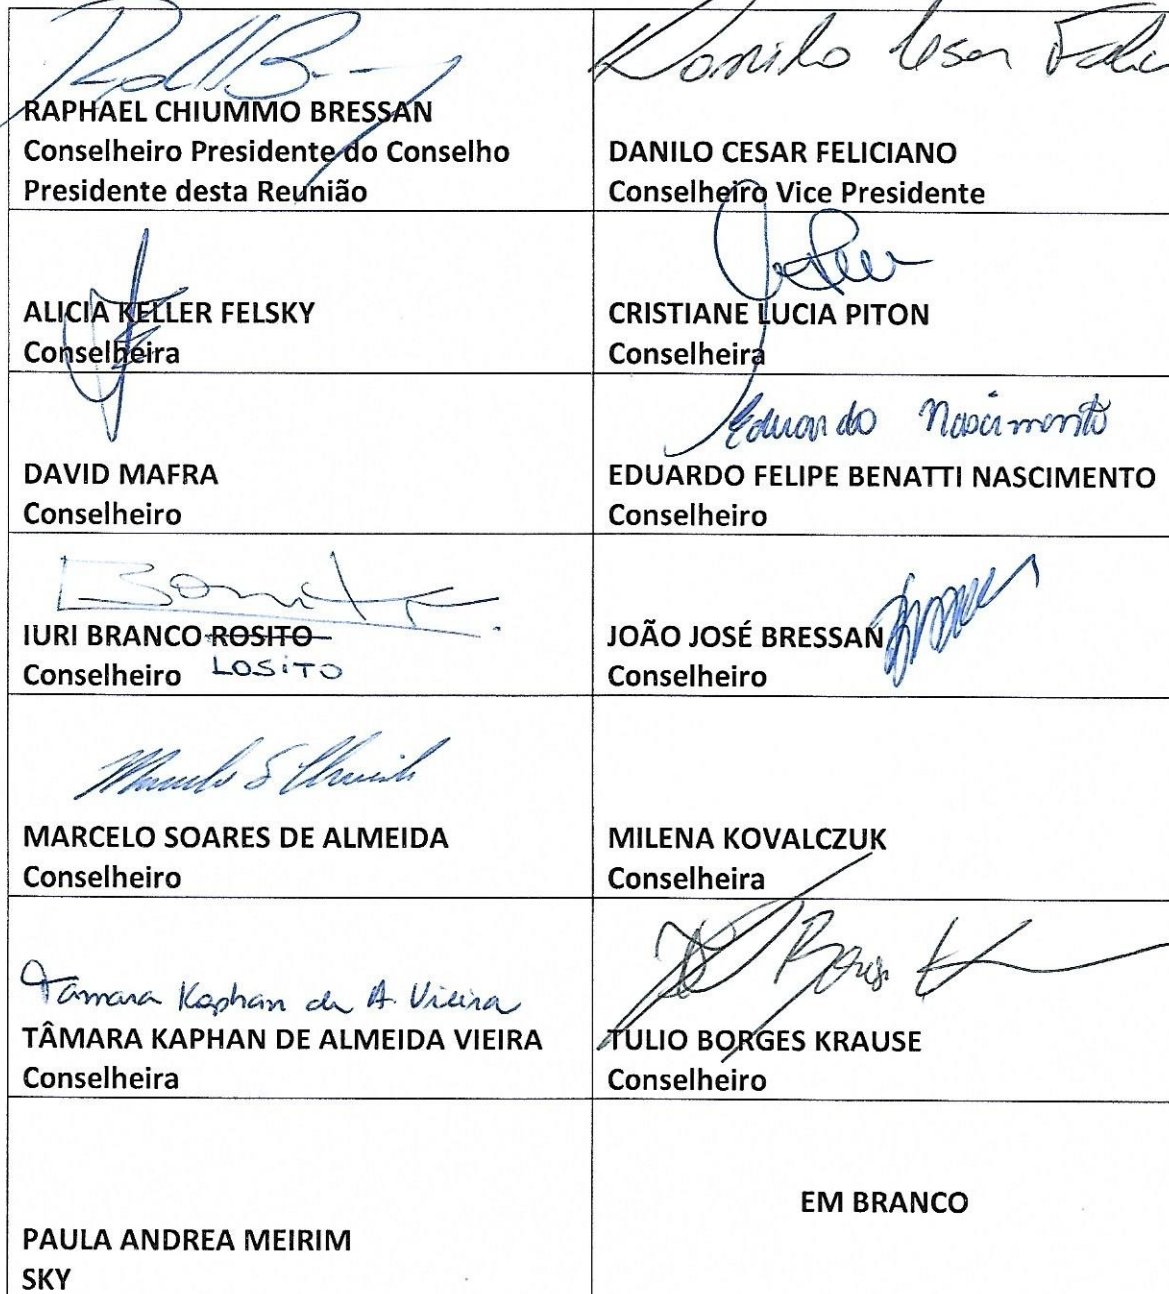 Danilo Cesar Felic
RAPHAEL CHIUMMO BRESSAN
Conselheiro Presidente do Conselho
Presidente desta Reunião
DANILO CESAR FELICIANO
Conselheiro Vice Presidente
ALICIA KELLER FELSKY
Conselheira
CRISTIANE LUCIA PITON
Conselheira
DAVID MAFRA
Conselheiro
Eduardo Nascimento
EDUARDO FELIPE BENATTI NASCIMENTO
Conselheiro
IURI BRANCO ROSITO
Conselheiro LOSITO
JOÃO JOSÉ BRESSAN
Conselheiro
MARCELO SOARES DE ALMEIDA
Conselheiro
MILENA KOVALCZUK
Conselheira
Tamara Kaphan de A. Vieira
TÂMARA KAPHAN DE ALMEIDA VIEIRA
Conselheira
TULIO BORGES KRAUSE
Conselheiro
PAULA ANDREA MEIRIM
SKY
EM BRANCO